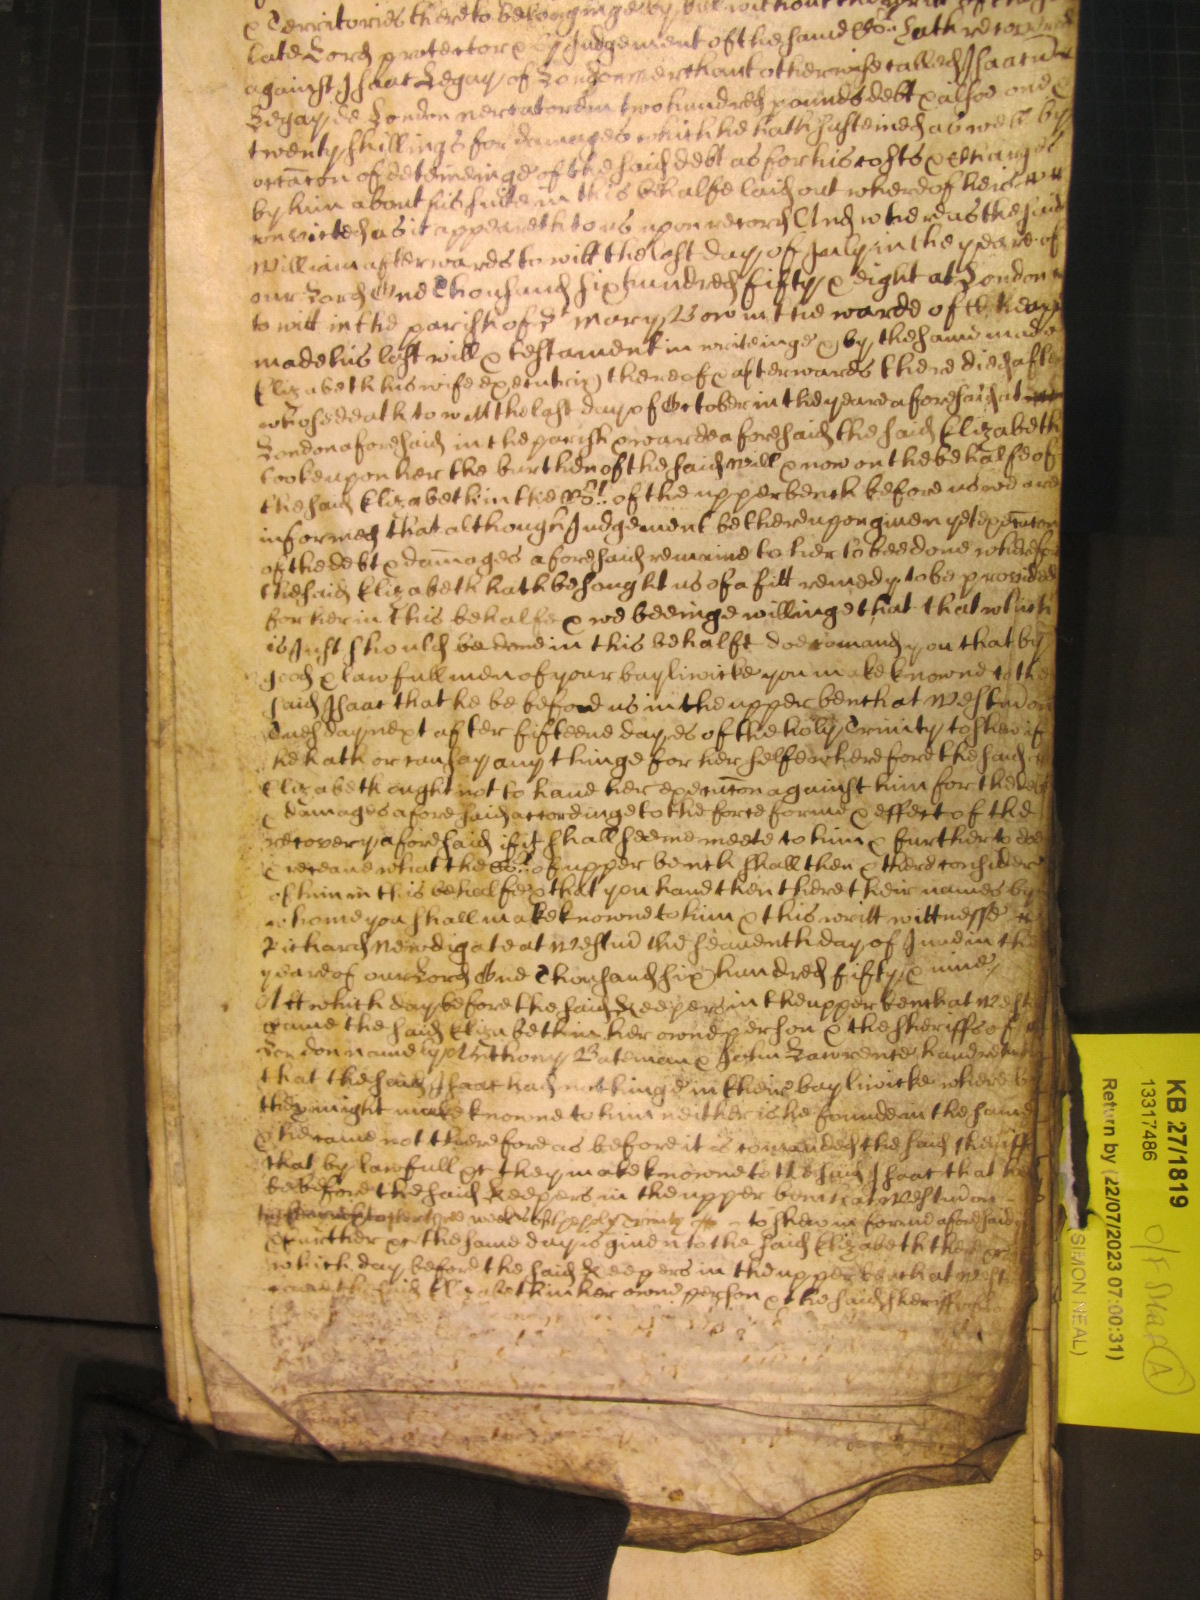 & Territories thereto belonginge by bill without the writt of the
late Lord protector & by Judgement of the same Co:rt hath recovered
against Isaac Legay of London merchant otherwise called Isaac
Legay de London mercatorem two hundred pounds debt & alsoe one &
twenty shillings for damages which he hath susteined as well by
occacon of deteineinge of the said debt as for his costs & charges
by him about his suite in this behalfe laid out whereof hee is
convicted as it appeareth to us upon record And whereas the said
William afterwards to witt the last day of July in the yeare of
our Lord One Thousand six hundred fifty & eight at London
to witt in the parish of St Mary Bow in the warde of Cheape
made his last will & testament in writeinge & by the same made
Elizabeth his wife executrix thereof & afterwards there died after
whose death to witt the last day of October in the yeare aforesaid at
London aforesaid in the parish & warde aforesaid the said Elizabeth
tooke upon her the burthen of the said will & now on the behalfe of
the said Elizabeth in the Co:rt of the upper bench before us wee are
informed that although Judgement be thereupon given yet execucon
of the debt & damages aforesaid remaine to her to bee done wherefore
the said Elizabeth hath besought us of a fitt remedy to be provided
for her in this behalfe & we beeinge willinge that that which
is Just should be done in this behalfe doe comand you that by
good & lawfull men of your bayliwicke you make knowne to the
said Isaac that he be before us in the upper bench at Westm on
Tuesday next after fifteene dayes of the holy Trinity to shew if
he hath or can say any thinge for her selfe wherefore the said
Elizabeth ought not to have her execucon against him for the debt
& damages aforesaid accordinge to the force forme & effect of the
recovery aforesaid if it shall seeme meete to him & further to doe
& receave what the Co:rt of upper bench shall then & there consider
of him in this behalfe & that you have then there their names by
whome you shall make knowne to him & this writt wittnesse
Richard Newdigate at Westm the seaventh day of June in the
yeare of our Lord One Thousand six hundred fifty & nine
Att which day before the said Keepers in the upper bench at Westm
came the said Elizabeth in her owne person & the sheriffs of
London namely Anthony Bateman & John Lawrence
that the said Isaac had nothinge in their bayliwicke where
they might make knowne to him neither is he founde in the same
& he came not therefore as before it is comanded the said sheriffs
that by lawfull &c they make knowne to the said Isaac that he
be before the said Keepers in the upper bench at Westm on
three weekes of holy Trinity to shew in forme aforesaid
& further &c the same day is given to the said Elizabeth there &c
which day before the said Keepers in the upper bench at Westm
came the said Elizabeth in her owne person & the said sheriffs
KB 27/1819
13317486
Return by (22/07/2023 07:00:31)
(SIMON NEAL)
A